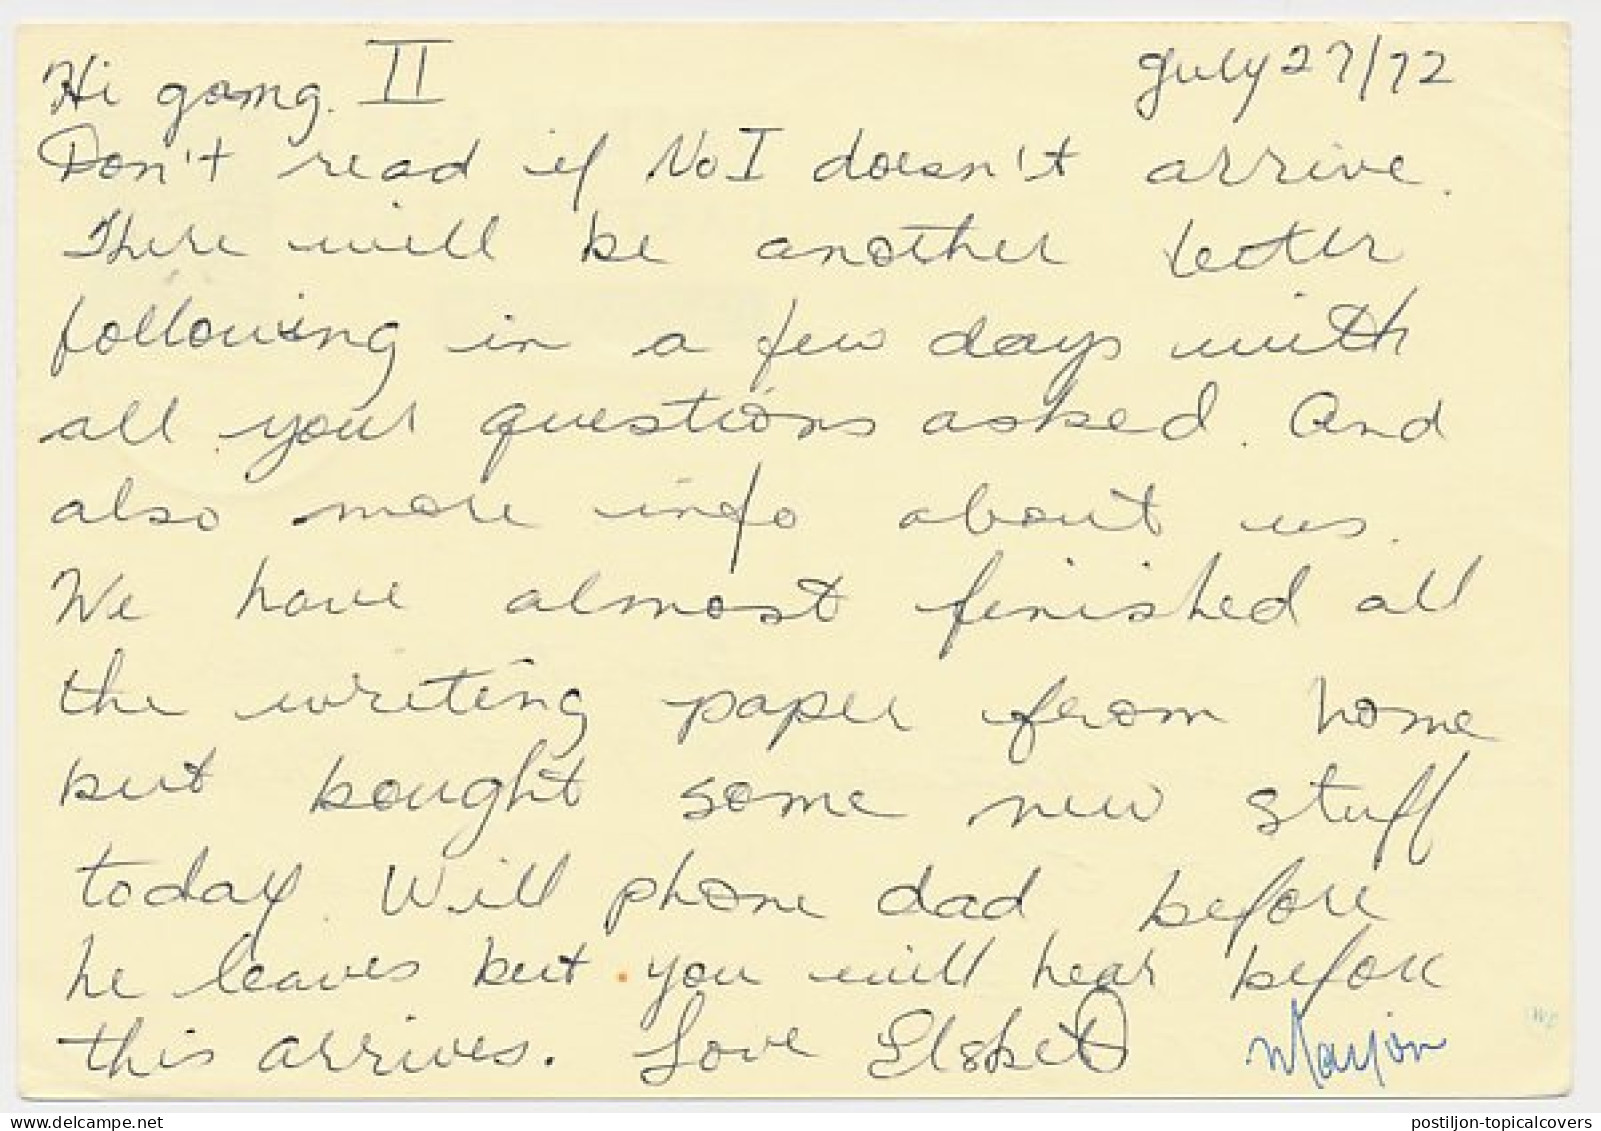 Hi gang. II July 27/72
Don't read if No I doesn't arrive.
There will be another letter
following in a few days with
all your questions asked. And
also more info about us.
We have almost finished all
the writing paper from home
but bought some new stuff
today. Will phone dad before
he leaves but you will hear before
this arrives. Love Marjon
postiljon-topicalcovers